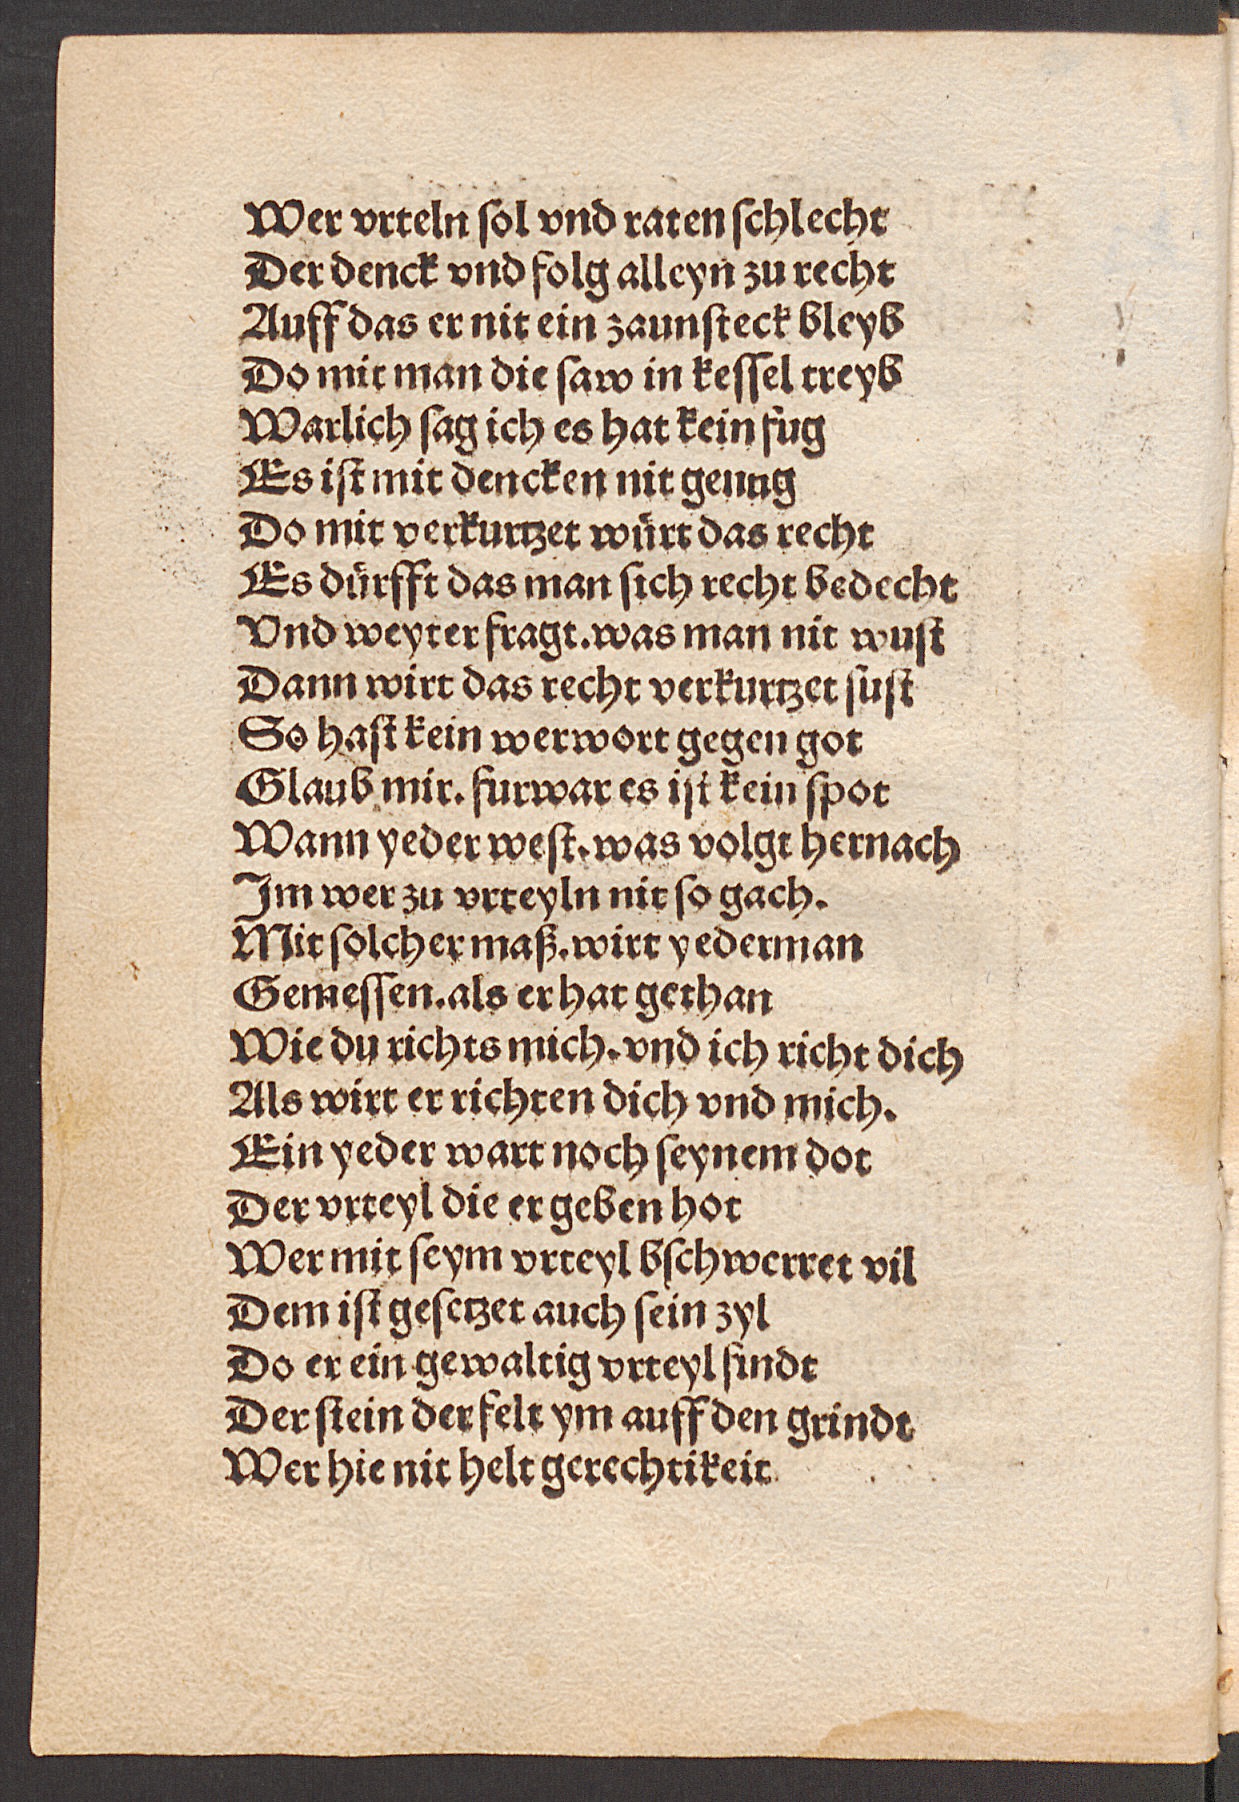 Wer vrteln sol vnd raten schlecht
Der denck vnd folg alleyn zu recht
Auff das er nit ein zaunsteck bleyb
Do mit man die saw in kessel treyb
Warlich sag ich es hat kein fůg
Es ist mit dencken nit genug
Do mit verkurtzet wůrt das recht
Es důrfft das man sich recht bedecht
Vnd weyter fragt.was man nit wust
Dann wirt das recht verkurtzet sust
So hast kein werwort gegen got
Glaub mir. furwar es ist kein spot
Wann yeder west.was volgt hernach
Jm wer zu vrteyln nit so gach.
Mit solcher maß.wirt yederman
Gemessen.als er hat gethan
Wie du richts mich.vnd ich richt dich
Als wirt er richten dich vnd mich.
Ein yeder wart noch seynem dot
Der vrteyl die er geben hot
Wer mit seym vrteyl bschwerret vil
Dem ist gesetzet auch sein zyl
Do er ein gewaltig vrteyl findt
Der stein der felt ym auff den grindt
Wer hie nit helt gerechtikeit